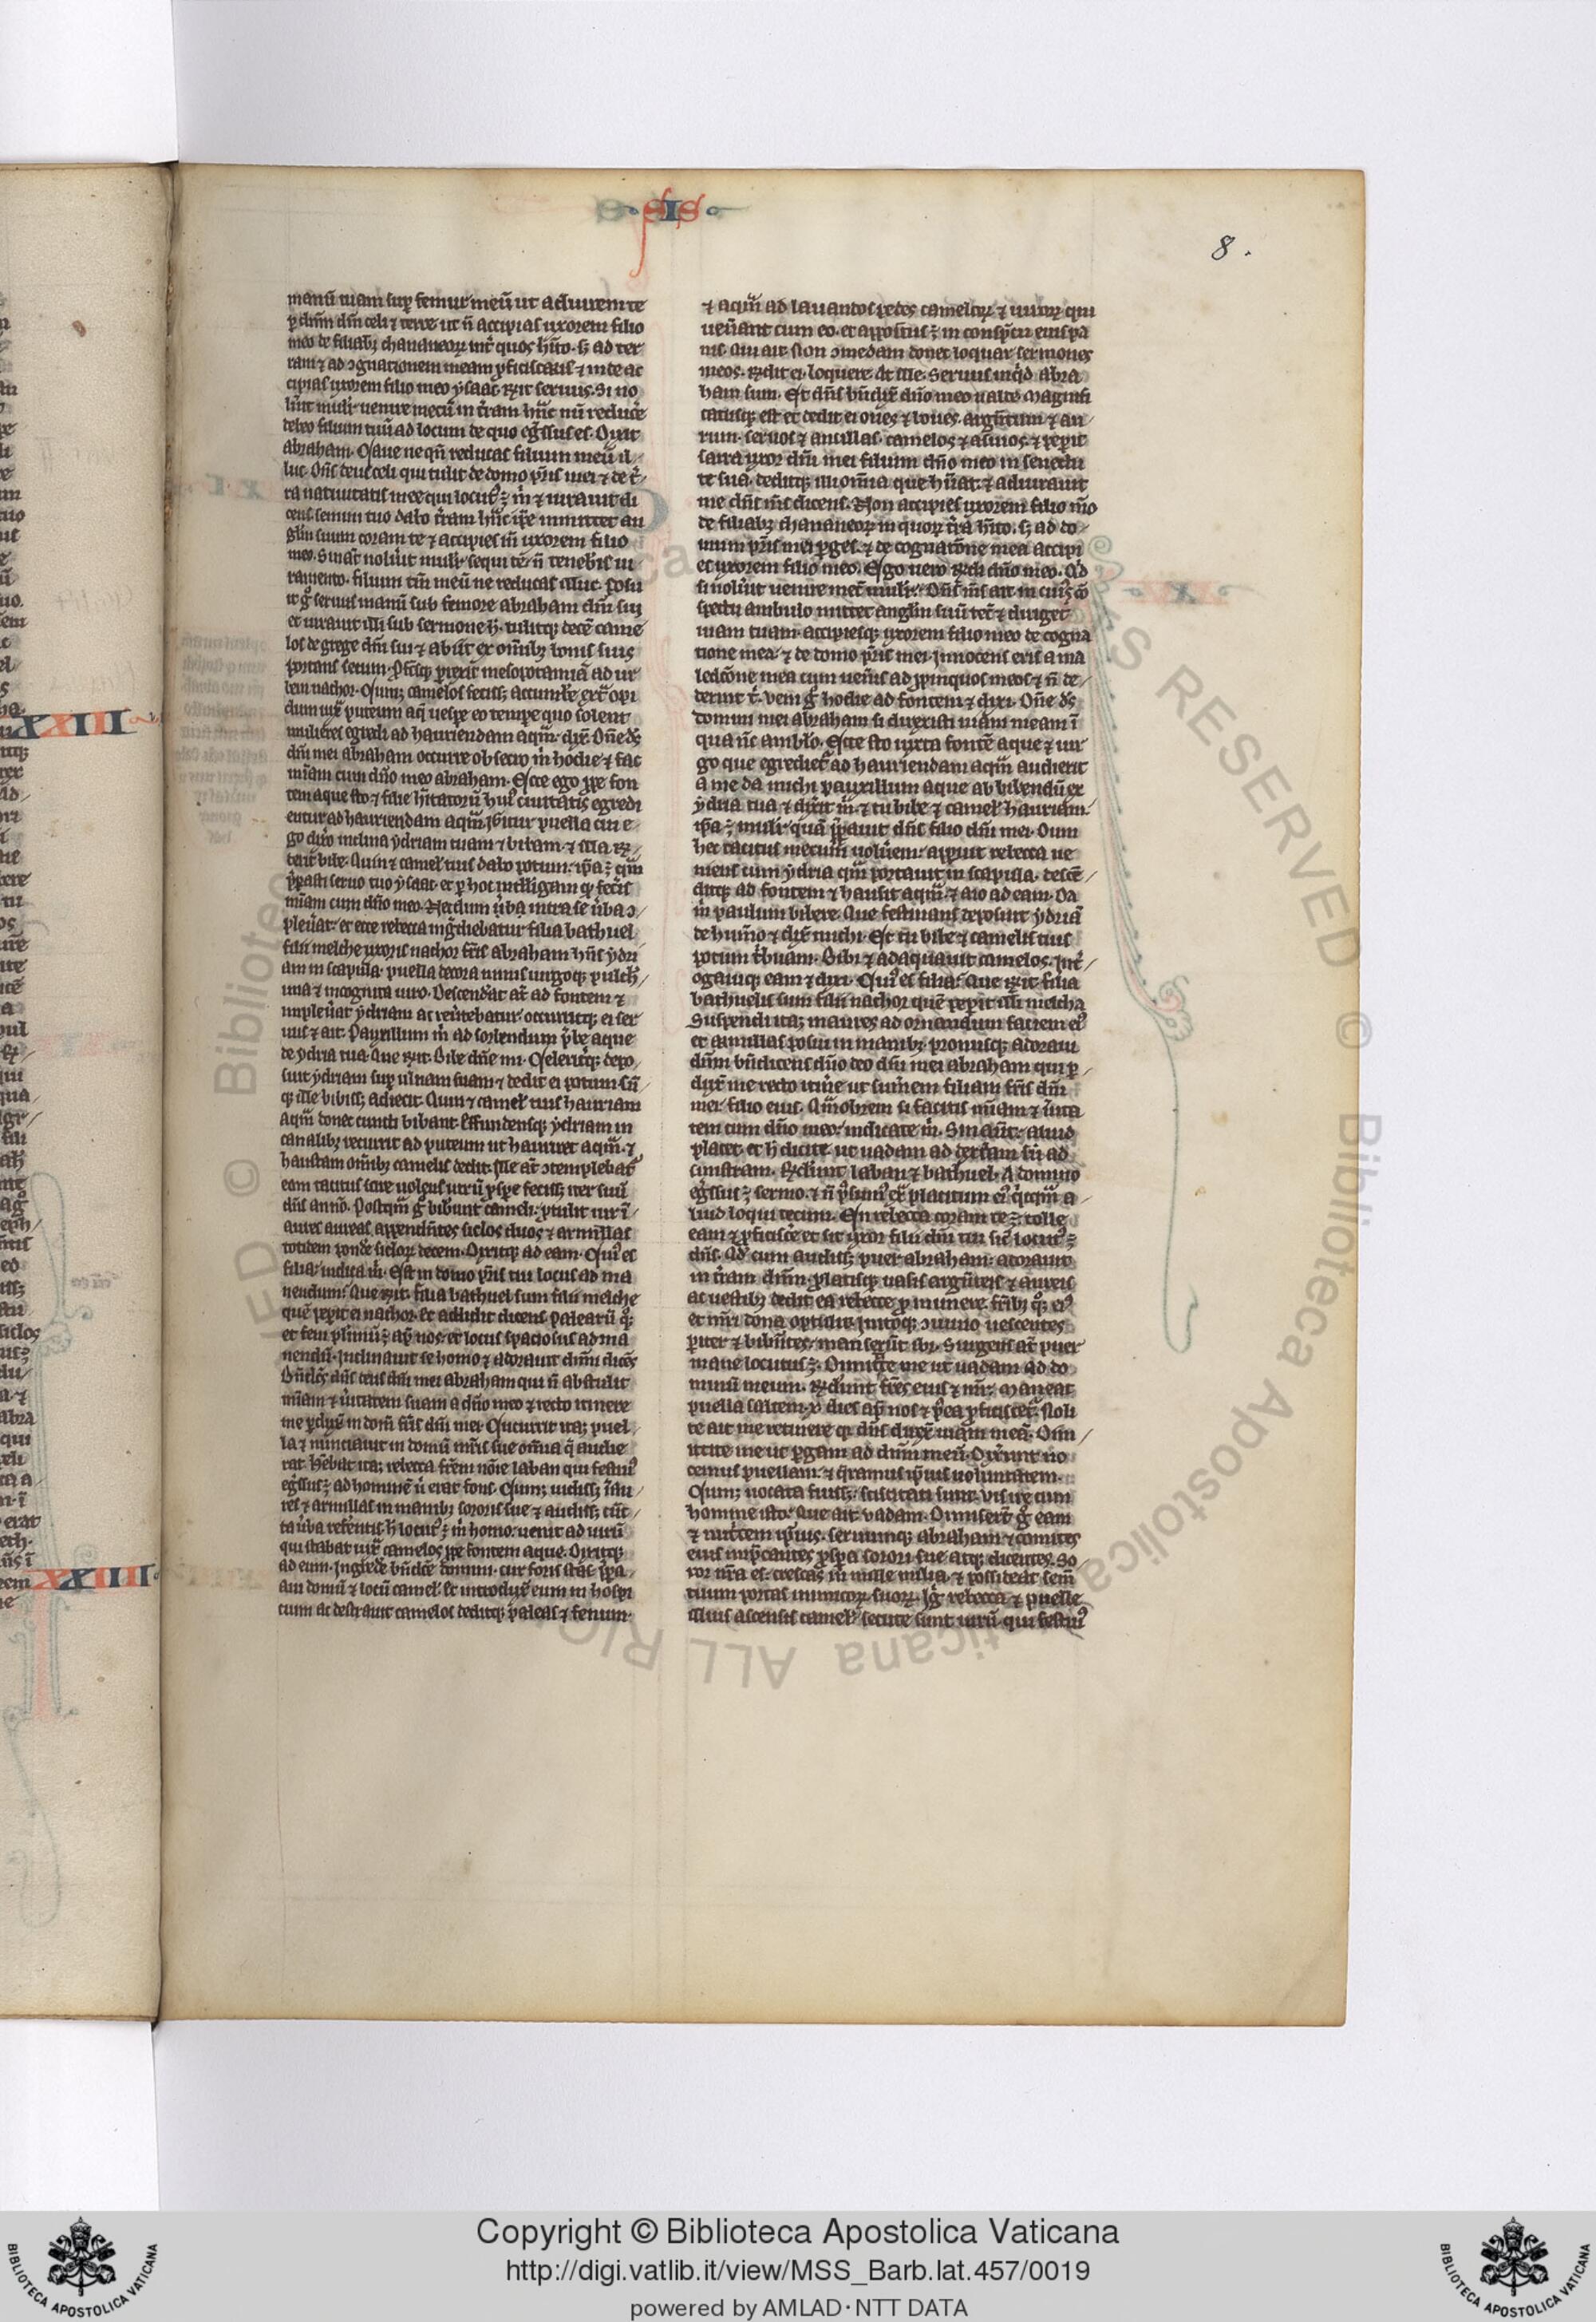 SIS
8.
manū tuam sup̱ femur meū ut adiurem te
ꝑ dn̄m dm̄ celi ⁊ terre ut n̄ accipias uxorem filio
meo de filiabꝫ chananeoꝝ int̓ quos h̓ito. sꝫ ad ter
ram ⁊ ad ↄgnationem meam ꝓficiscaris ⁊ inde ac
cipias uxorem filio meo ysaac. Rn̄dit seruus. Si no
luerit mulier uenire mecū in t̓ram hāc nū reduce̓
debeo filium tuū ad locum de quo eg̓ssus es. Dixit
abraham. Caue ne qn̄ reducas filium meū il
luc. Dn̄s deus celi qui tulit de domo pr̄is mei ⁊ de t̓
ra natiuitatis mee qui locutꝰ ꝫ m̓ ⁊ iurauit di
cens. semini tuo dabo t̓ram hāc ip̄e mittet an
gl̄m suum coram te ⁊ accipies in̄ uxorem filio
meo. Sin aūt noluerit mulier sequi te. n̄ teneberis iu
ramento. filium tm̄ meū ne reducas illuc. Posu
it gͦ seruus manū sub femore abraham dn̄i sui
et iurauit illi sub sermone h̓. tulitqꝫ decē came
los de grege dn̄i sui ⁊ abiit ex om̄ibꝫ bonis suis
portans secum. ꝓfectusqꝫ ꝑrexit mesopotamiā ad ur
bem nachor. Cumqꝫ camelos fecissꝫ accumbe̓ ext̓ opi
dum iux̄ puteum aq̄ uespe̓ eo tempe̓ quo solent
mulieres egredi ad hauriendam aqm̄. dix̄. Dn̄e ds̄
dn̄i mei abraham occurre obsecro m̓ hodie ⁊ fac
mīam cum dn̄o meo abraham. Ecce ego ꝓpe fon
tem aque sto ⁊ filie h̓itatorū huiꝰ ciuitatis egredi
entur ad hauriendam aqm̄. Igitur puella cui e
go dix̄o inclina ydriam tuam ⁊ bibam. ⁊ illa rn̄
derit bibe. Quin ⁊ camelis tuis dabo potum. ip̄a ꝫ qm̄
p̓parasti seruo tuo ysaac. et ꝑ hoc intelligam qꝫ fec̓is
mīam cum dn̄o meo. Necdum ūba intra se ūba ↄ
pleu̓at. et ecce rebecca eg̓diebatur filia bathuel
filii melche uxoris nachor fr̄is abraham hn̄s ydri
am in scapula. puella decora nimis uirgoqꝫ pulch̓
rima ⁊ incognita uiro. Descendar̓at at̓ ad fontem ⁊
impleu̓at ydriam ac reu̓tebatur. occurritqꝫ ei ser
uus ⁊ ait. Pauxillum m̓ ad sorbendum p̓be aque
de ydria tua. Que rn̄dit. Bibe dn̄e mi. Celeriterqꝫ depo
suit ydriam sup̱ ulnam suam ⁊ dedit ei potum. Cū
qꝫ ille bibissꝫ adiecit. Quin ⁊ camelis tuis hauriam
aqm̄ donec cuncti bibant. Effundensqꝫ ydriam in
canalibꝫ recurrit ad puteum ut hauriret aqm̄. ⁊
haustam om̄ibꝫ camelis dedit. Ille at̓ ↄtemplabat̓
eam tacitus scire uolens utrū ꝓspe̓ fecissꝫ iter suū
dn̄s an nō. Postqm̄ gͦ biberunt cameli. ꝓtulit uir ī
aures aureas appendn̄tes siclos duos ⁊ armillas
totidem ponde̓ sicloꝝ decem. Dixitqꝫ ad eam. Cuiꝰ es
filia. indica m̓. Est in domo pr̄is tui locus ad ma
nendum. Que rn̄dit. filia bathuel sum filii melche
quē pep̱it ei nachor. Et addidit dicens. palearū qͦqꝫ
et feni plurimū ꝫ apud nos. et locus spaciosus ad ma
nendū. Inclinauit se homo ⁊ adorauit dn̄m dicēs
Bn̄dictus dn̄s deus dn̄i mei abraham qui n̄ abstulit
mīam ⁊ ūitatem suam a dn̄o meo ⁊ recto itinere
me ꝑdux̄ in domū fr̄is dn̄i mei. Cucurrit itaqꝫ puel
la ⁊ nunciauit in domū mr̄is sue om̄ia q̄ audie
rat. Habebat itaqꝫ rebecca fr̄em noīe laban qui festinꝰ
eg̓ssus ꝫ ad hominē ubi erat fons. Cumqꝫ uidissꝫ īau
res ⁊ armillas in manibꝫ sororis sue ⁊ audissꝫ cūc
ta ūba refe̓ntis h̓ locutꝰ ꝫ m̓ homo. uenit ad uirū
qui stabat iux̄ camelos ꝓpe fontem aque. Dixitqꝫ
ad eum. Ingrede̓ bn̄dicte̓ domini. cur foris stas. p̓pa
aui domū ⁊ locū camelis. Et introdux̄ eum in hospi
cium ac destrauit camelos deditqꝫ paleas ⁊ fenum.
⁊ aqm̄ ad lauandos pedes cameloꝝ ⁊ uiroꝝ qui
uen̓ant cum eo. et appositus ꝫ in conspc̄u eius pa
nis. Qui ait. Non ↄmedam donec loquar sermones
meos. Rn̄dit ei. loquere. At ille. Seruus inqͥd abra
ham sum. Et dn̄s bn̄dix̄ dn̄o meo ualde. Magnifi
catusqꝫ est et dedit ei oues ⁊ boues. argentum ⁊ au
rum. seruos ⁊ ancillas. camelos ⁊ asinos. ⁊ pep̱it
sarra uxor dn̄i mei filium dn̄o meo in senectu
te sua. deditqꝫ illi om̄ia que hu̓at. ⁊ adiurauit
me dn̄s ms̄ dicens. Non accipies uxorem filio mō
de filiabꝫ chananeoꝝ in quoꝝ t̓ra h̓ito. sꝫ ad do
mum pr̄is mei ꝑges. ⁊ de cognatōne mea accipi
es uxorem filio meo. Ego uero rn̄di dn̄o meo. Qͥd
si noluerit uenire mecū mulier. Dn̄s m̓s ait. in cuiꝰ cō
spectu ambulo mittet anglm̄ suū tecū ⁊ diriget
uiam tuam. accipiesqꝫ uxorem filio meo de cogna
tione mea. ⁊ de domo pr̄is mei. Innocens eris a ma
ledcōne mea cum uen̓is ad ꝓpinquos meos ⁊ n̄ de
derint t̓. Veni gͦ hodie ad fontem ⁊ dixi. Dn̄e ds̄
domini mei abraham si direxisti uiam meam ī
qua nc̄ ambulo. Ecce sto iuxta fontē aque ⁊ uir
go que egrediet̓ ad hauriendam aqm̄ audierit
a me da michi pauxillum aque ad bibendū ex
ydria tua ⁊ dix̄it m̓. ⁊ tu bibe ⁊ camelis hauriam.
ip̄a ꝫ mulier quā p̓parauit dn̄s filio dn̄i mei. Dum
hec tacitus mecum uolu̓em. apparuit rebecca ue
niens cum ydria qm̄ portauit in scapula. descē
ditqꝫ ad fontem ⁊ hausit aqm̄. ⁊ aio ad eam. Da
m̓ paulum bibere. Que festinans deposuit ydriā
de humo ⁊ dix̄ michi. Et tu bibe ⁊ camelis tuis
potum t̓buam. Bibi ⁊ adaquauit camelos. Int̓
ogauiqꝫ eam ⁊ dixi. Cuiꝰ es filia. Que rn̄dit. filia
bathuelis sum filii nachor quē pep̱it illi melcha
Suspendi itaqꝫ inaures ad ornandum faciem eiꝰ
et armillas posui in manibꝫ. pronusqꝫ adoraui
dn̄m bn̄dicens dn̄o deo dn̄i mei abraham qui ꝑ
dux̄ me recto itine̓ ut sumerem filiam fr̄is dn̄i
mei filio eius. Quāobrem si facitis mīam ⁊ ūita
tem cum dn̄o meo. indicate m̓. Sin aūt aliud
placet. et h̓ dicite. ut uadam ad dext̓am siue ad
sinistram. Rn̄derunt laban ⁊ bathuel. A domino
eg̓ssus ꝫ sermo. ⁊ n̄ possumꝰ ext̓ placitum eiꝰ qͥcqm̄ a
liud loqui tecum. En rebecca coram te ꝫ. tolle
eam ⁊ ꝓficisce̓ et sit uxor filii dn̄i tui sic̄ locutꝰ ꝫ
dn̄s. Qd̓ cum audissꝫ puer abraham. adorauit
in t̓ram dn̄m. ꝓlatisqꝫ uasis argenteis ⁊ aureis
ac uestibꝫ dedit ea rebecce ꝓ munere. fr̄ibꝫ qͦqꝫ eiꝰ
et mr̄i dona optulit. Initoqꝫ ↄuiuio uescentes
pariter ⁊ bibentes. manserūt ibi. Surgens at̓ puer
mane locutus ꝫ. Dimitte me ut uadam ad do
minū meum. Rn̄derunt fr̄es eius ⁊ mr̄. Maneat
puella saltem x dies apud nos ⁊ postea ꝓficiscet̓. Noli
te ait me retinere qꝫ dn̄s direx̄ uiam meā. Dim
ittite me ut ꝑgam ad dn̄m meū. Dixerunt uo
cemus puellam. ⁊ q̄ramus ip̄ius uoluntatem.
Cumqꝫ uocata fuissꝫ. sciscitati sunt. uis ire cum
homine isto. Que ait. vadam. Dimiserūt gͦ eam
⁊ nutricem ip̄ius. seruumqꝫ abraham ⁊ comites
eius imp̓cantes ꝓspera sorori sue atqꝫ dicentes. So
ror nr̄a es. crescas in mille milia. ⁊ possideat semen
tuum portas inimicoꝝ suoꝝ. Ig̓ rebecca ⁊ puelle
illius ascensis camelis secute sunt uirū. qui festinꝰ
IIXX
XXIIII
Copyright © Biblioteca Apostolica Vaticana
http://digi.vatlib.it/view/MSS_Barb.lat.457/0019
powered by AMLAD·NTT DATA
BIBLIOTECA APOSTOLICA VATICANA
BIBLIOTECA APOSTOLICA VATICANA